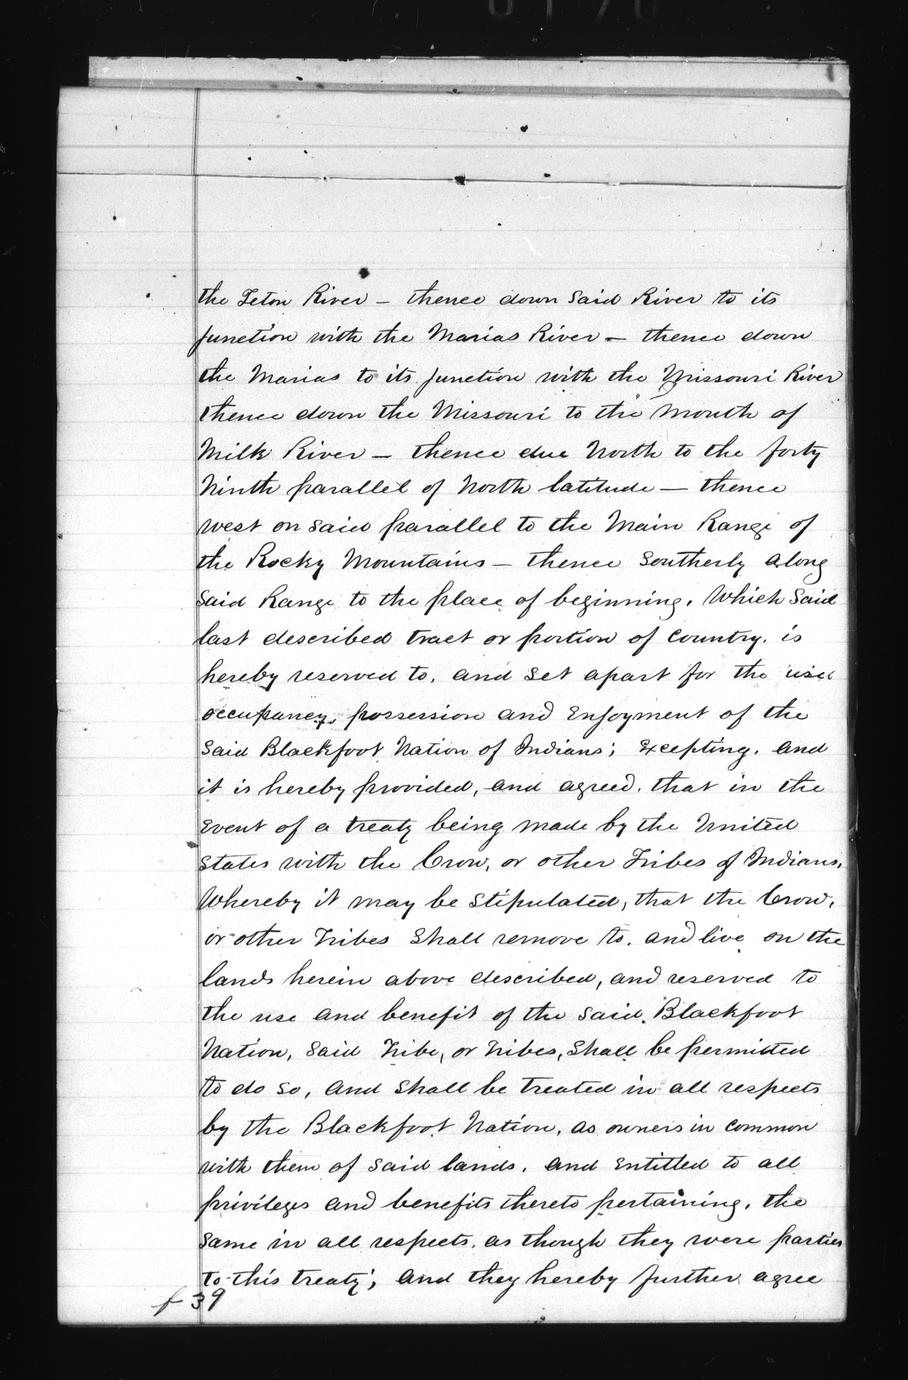 the Teton River – thence down Said River to its
junction with the Marias River – thence down
the Marias to its junction with the Missouri River
thence down the Missouri to the Mouth of
Milk River – thence due North to the forty
Ninth parallel of North latitude – thence
west on said parallel to the Main Range of
the Rocky Mountains – thence Southerly along
Said Range to the place of beginning. Which Said
last described tract or portion of country. is
hereby reserved to, and Set apart for the use
occupancy, possession and Enjoyment of the
Said Blackfoot Nation of Indians; Excepting. and
it is hereby provided, and agreed. that in the
Event of a treaty being made by the United
States with the Crow, or other Tribes of Indians,
Whereby it may be Stipulated, that the Crow,
or other Tribes Shall remove to. and live on the
lands herein above described, and reserved to
the use and benefit of the Said Blackfoot
Nation, Said Tribe, or Tribes, Shall be permitted
to do So, and Shall be treated in all respects
by the Blackfoot Nation, as owners in common
with them of Said lands, and Entitled to all
privileges and benefits thereto pertaining, the
Same in all respects, as though they were parties
to this treaty; and they hereby further agree
f 39